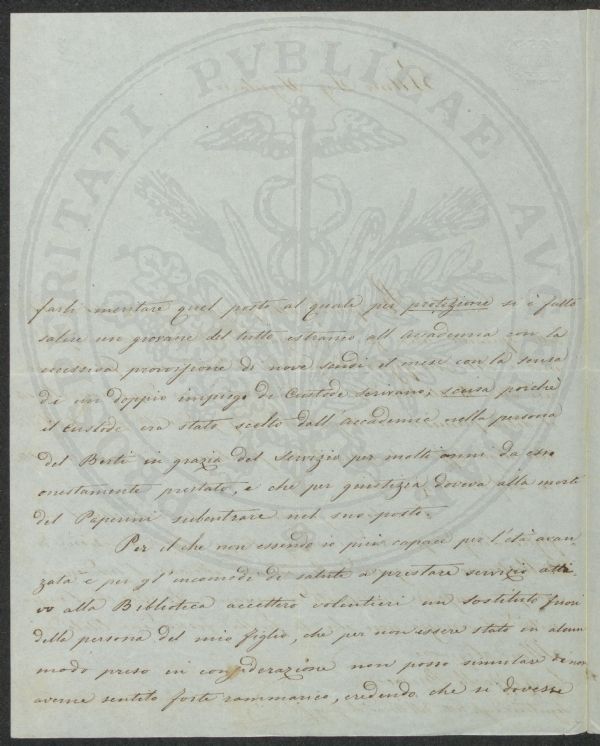 PROSPERITATI PVBLICAE AVG
farli meritare quel posto al quale per protezione si è fatto
salire un giovane del tutto estraneo all'Accademia con la
eccessiva provvisione di nove scudi il mese con la scusa
di un doppio impiego di Custode scrivano; scusa poichè
il Custode era stato scelto dall'Accademia nella persona
del Berti in grazia del Servizio per molti anni da esso
onestamente prestato, e che per giustizia doveva alla morte
del Paperini subentrare nel suo posto.
Per il che non essendo io più capace per l'età avan
zata e per gl'incomodi di salute a prestare servizio atti-
vo alla Biblioteca accetterò volentieri un sostituto fuori
della persona del mio figlio, che per non essere stato in alcun
modo preso in considerazione non posso simulare di non
averne sentito forte rammarico, credendo che si dovesse